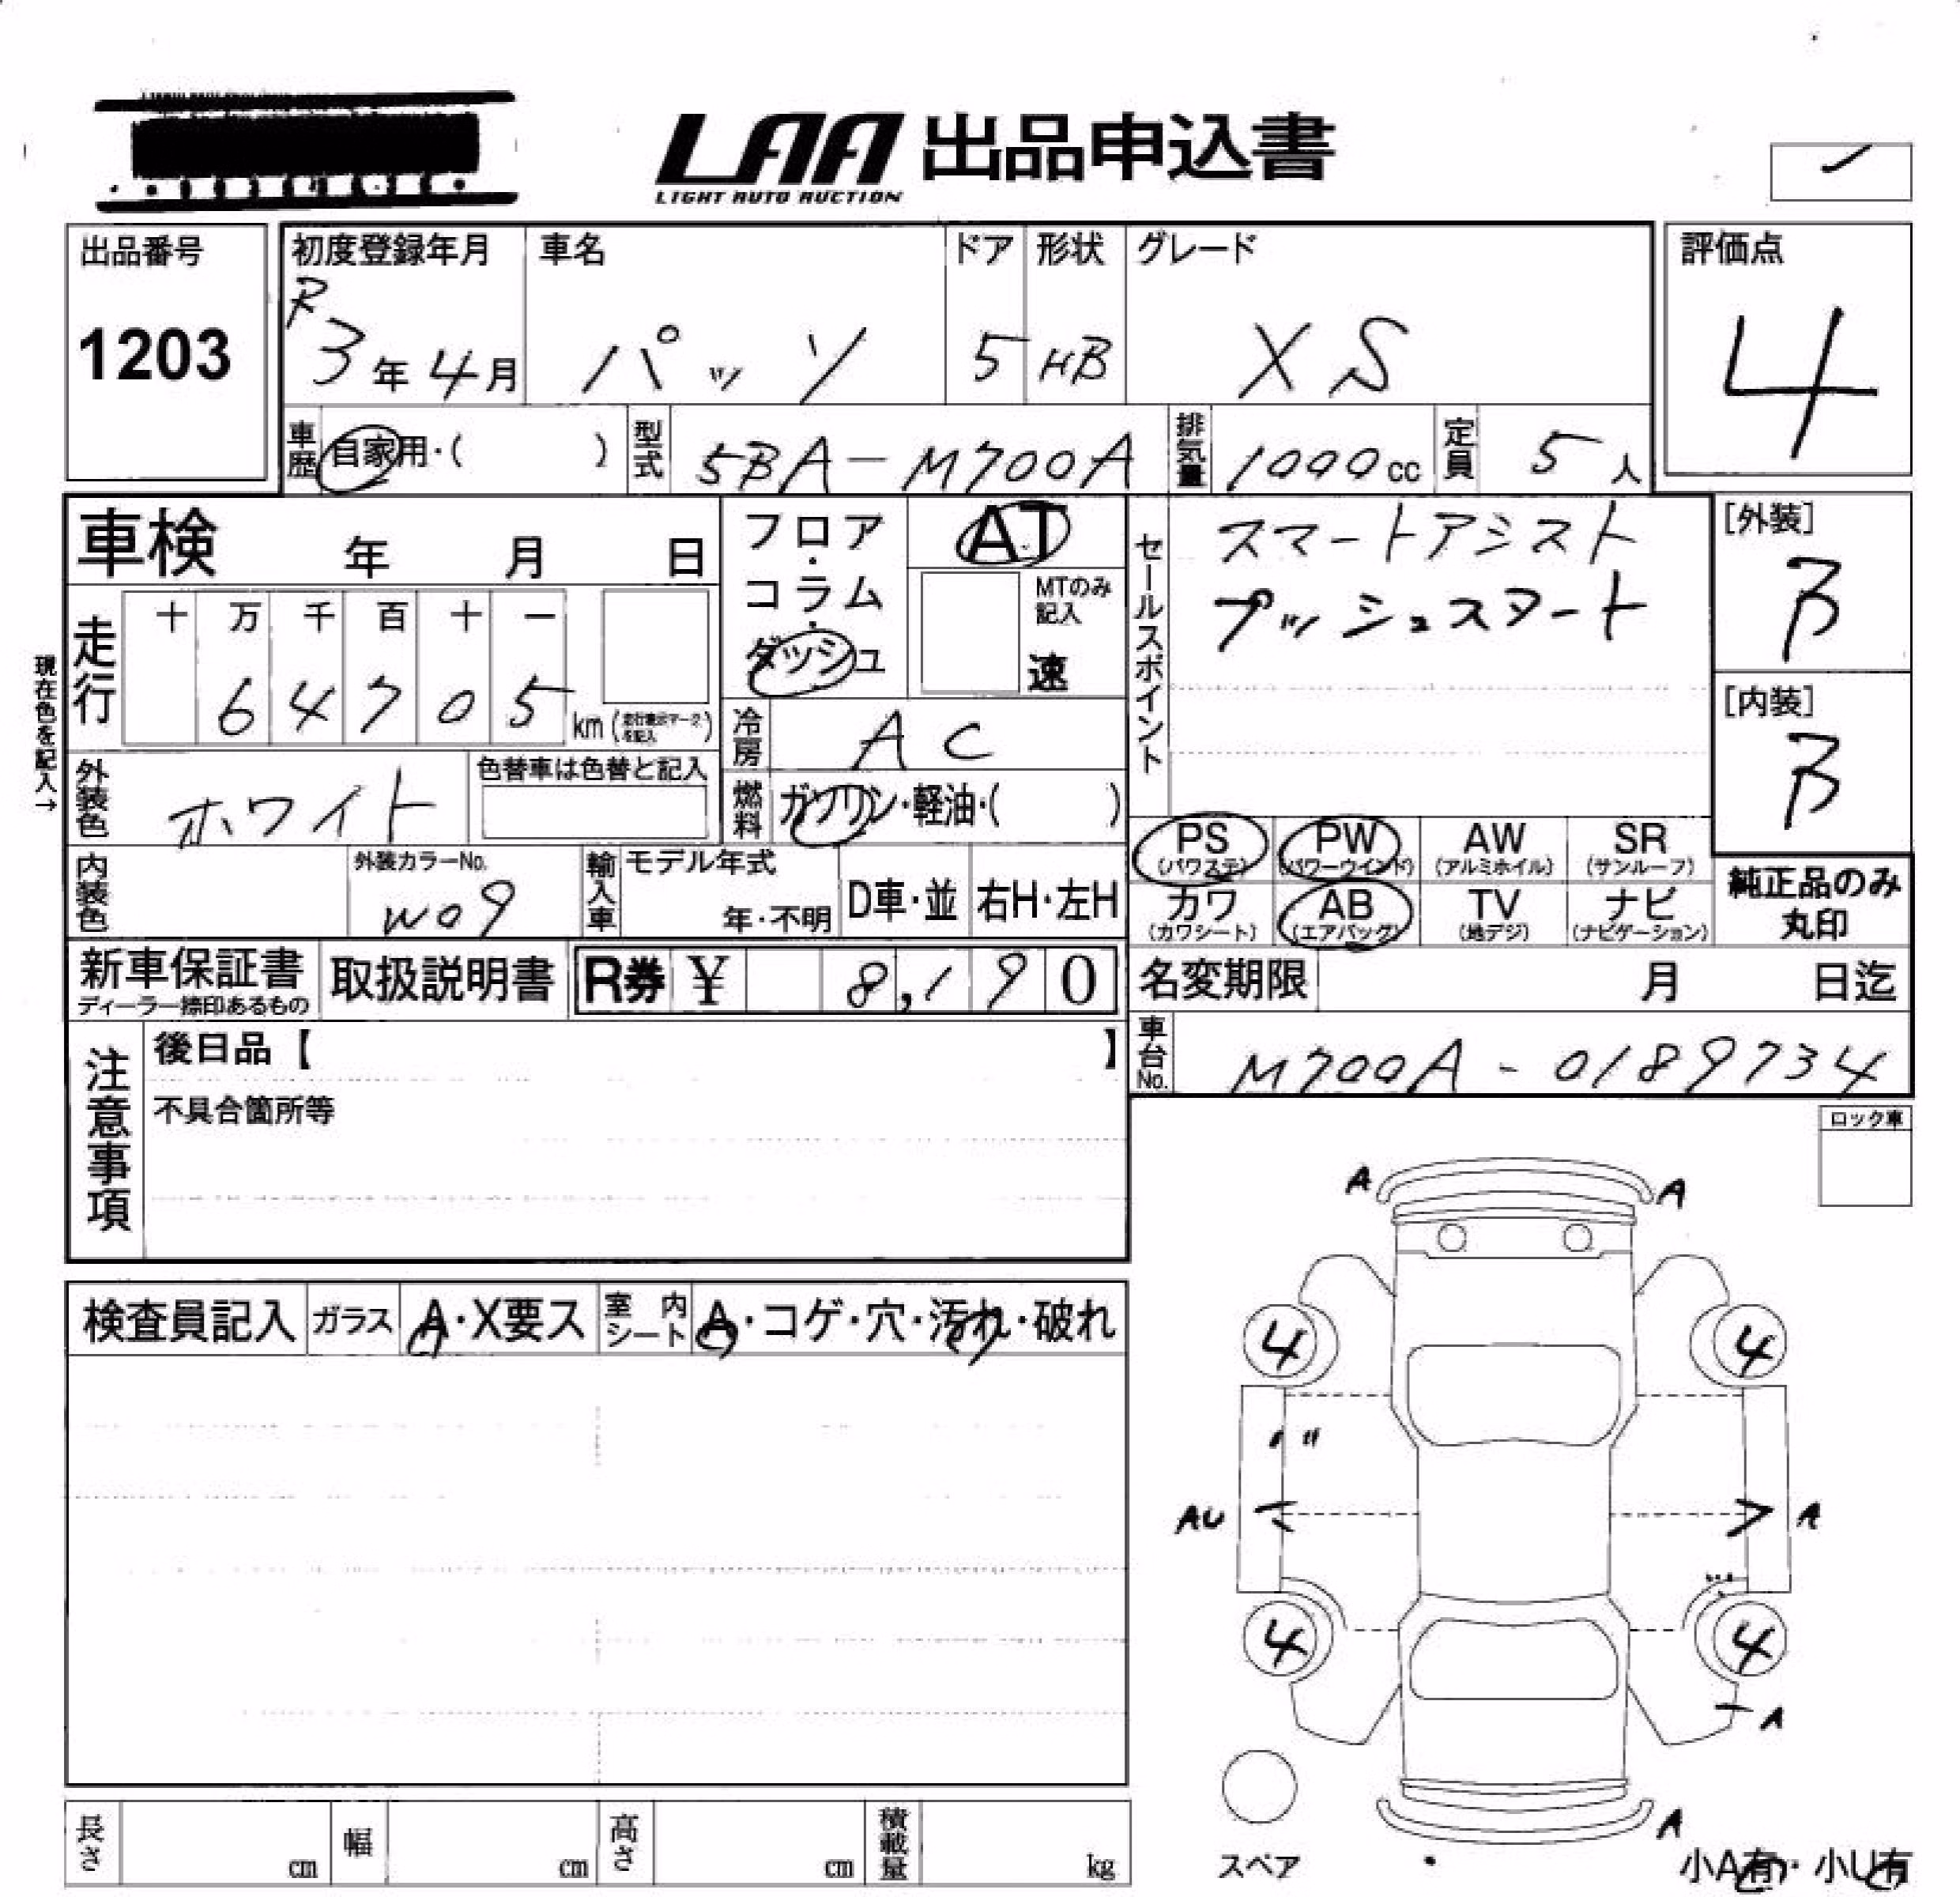 LAA 出品申込書
LIGHT AUTO AUCTION
出品番号
1203
初度登録年月 車名 ドア 形状 グレード
R3年4月 パッソ 5 HB XS
評価点
4
車歴 自家用・( ) 型式 5BA-M700A 排気量 1000cc 定員 5人
車検 年 月 日
フロア・コラム・ダッシュ
AT
MTのみ記入
速
セールスポイント
スマートアシスト
プッシュスタート
[外装]
B
[内装]
B
現在色を記入→
走行 十 万 千 百 十 一
64705 km (走行表示マークを記入)
冷房 AC
外装色 ホワイト 色替車は色替と記入
燃料 ガソリン・軽油・( )
PS AW SR PW
(パワステ) (パワーウインド) (アルミホイル) (サンルーフ)
内装色 外装カラーNo. W09
輸入車 モデル年式 年・不明 D車・並 右H・左H
カワ AB TV ナビ
(カワシート) (エアバッグ) (地デジ) (ナビゲーション)
純正品のみ
丸印
新車保証書 取扱説明書 R券 ¥ 8,190
ディーラー捺印あるもの
名変期限 月 日迄
車台No. M700A-0189734
注意事項
後日品【 】
不具合箇所等
ロック車
A A
検査員記入 ガラス A・X要ス 室内シート A・コゲ・穴・汚れ・破れ
4 4
AU A
4 4
A
A
スペア
小A有・小U有
長さ cm 幅 cm 高さ cm 積載量 kg